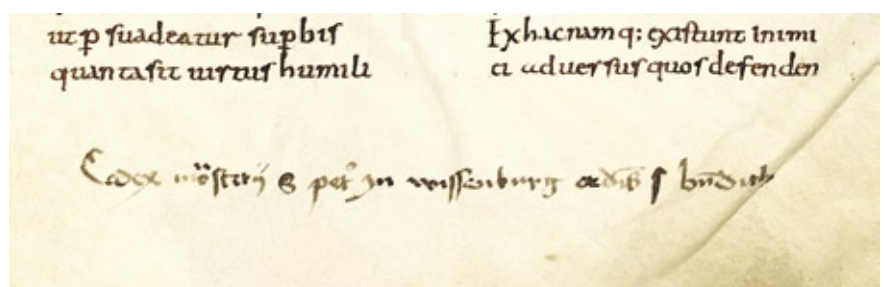 ut ꝑsuadeatur suꝑbis
quanta sit uirtus humili
Ex hac namq: existunt inimi
ci aduersus quos defenden
Codex mōsterij S petꝰ in wissenburg ordīs s bn̄dicti